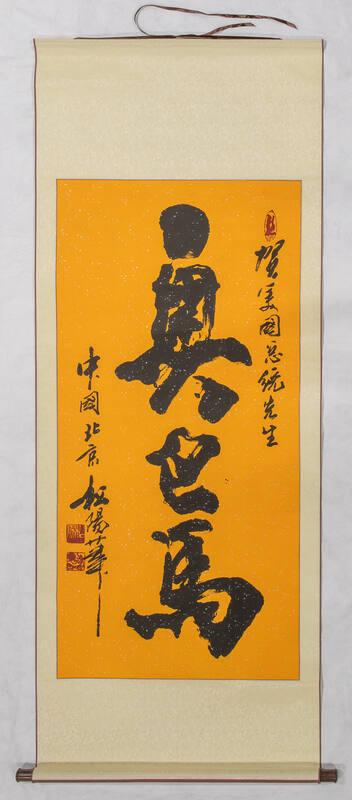 贺美国总统先生
奥巴马
中国北京 松阳华